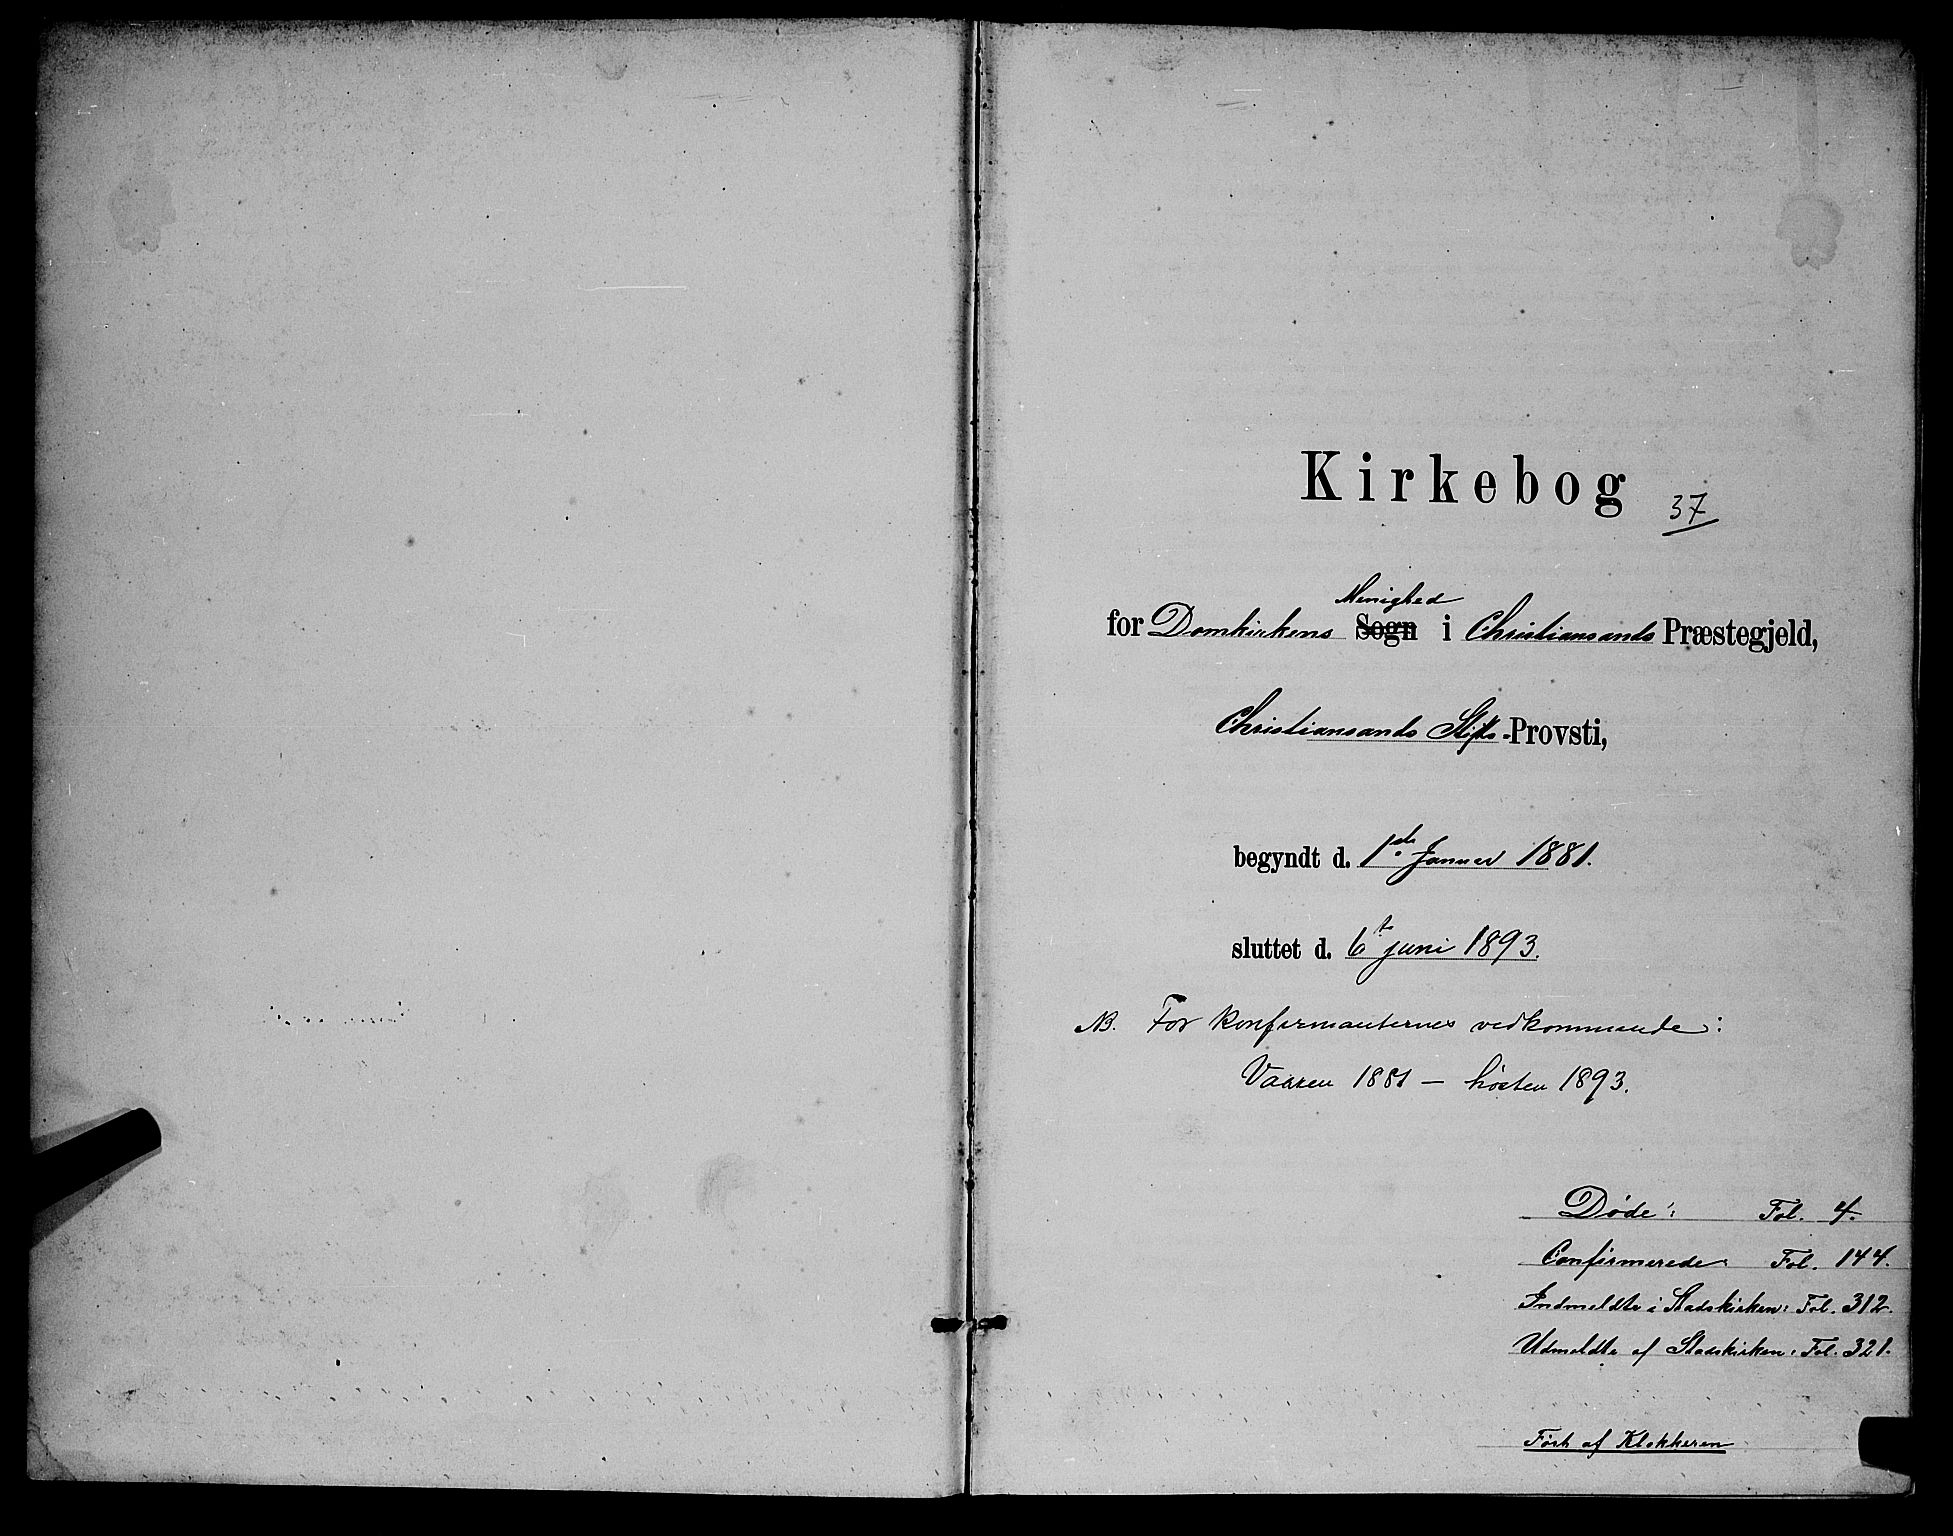 Kirkebog
37
Menighed
for Domkirkens Sogn i Christiansands Præstegjeld,
Christiansands Stifts-Provsti,
begyndt d. 1ste Januar 1881.
sluttet d. 6te juni 1893.
NB. For konfirmanternes vedkommende:
Vaaren 1881 — høsten 1893.
Døde: Fol. 4.
Confirmerede: Fol. 144.
Indmeldte i Stadskirken: Fol. 312.
Udmeldte af Stadskirken: Fol. 321.
Ført af Klokkeren